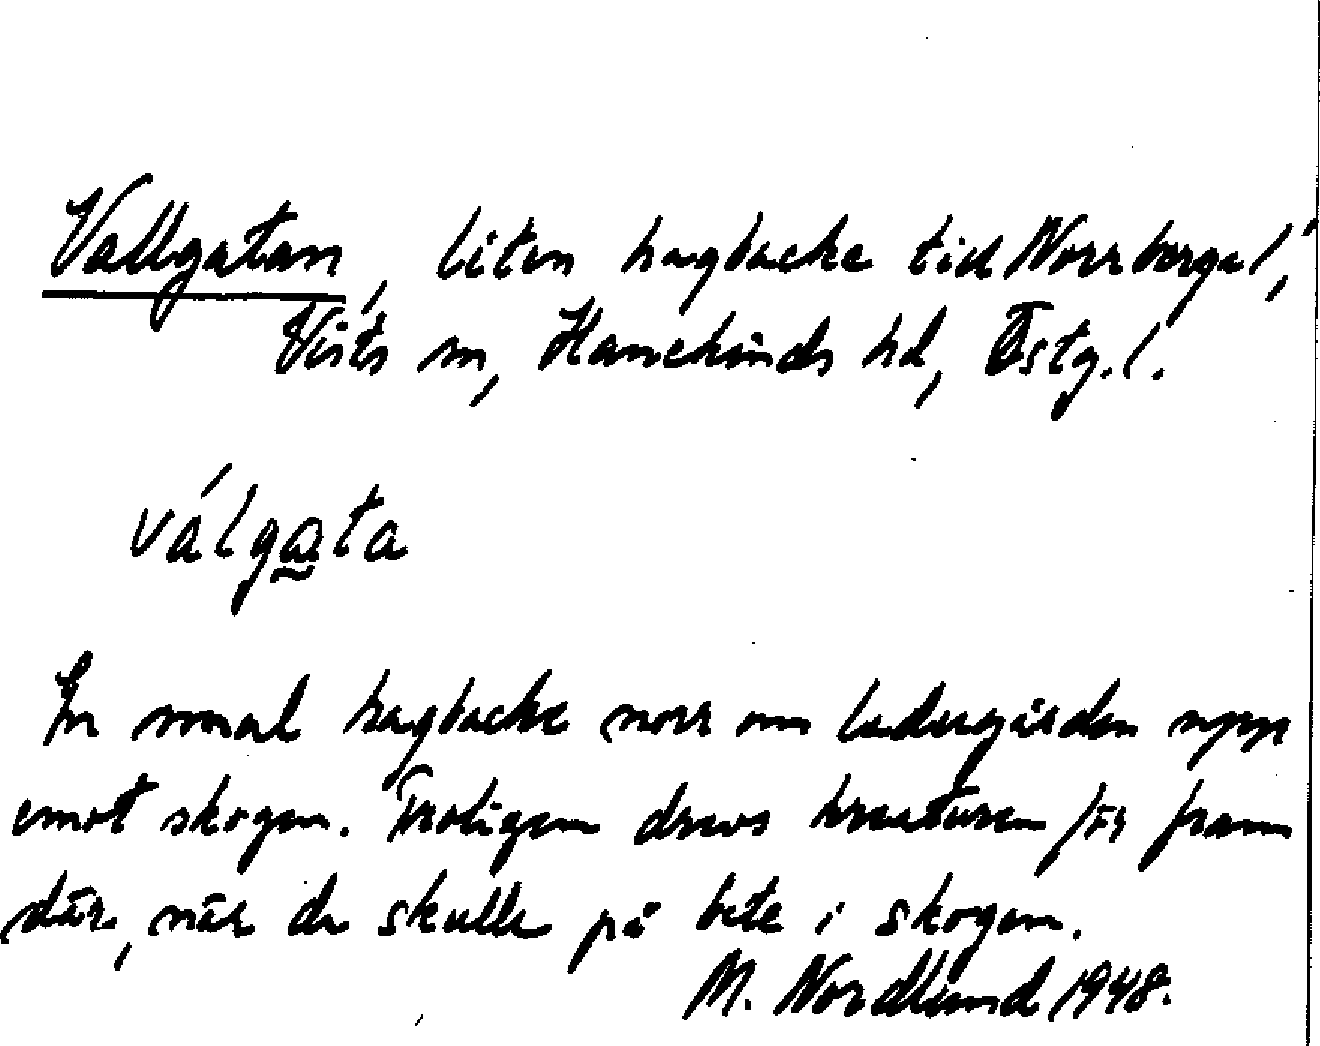 Vallgatan, liten hagbacke till Norrberga l,
Vists sn, Hanekinds hd, Östg. l.
válgata
En smal hagbacke norr om ladugården upp
emot skogen. Troligen drevs kreaturen förr fram
där, när de skulle på bete i skogen.
M. Nordlund 1948.